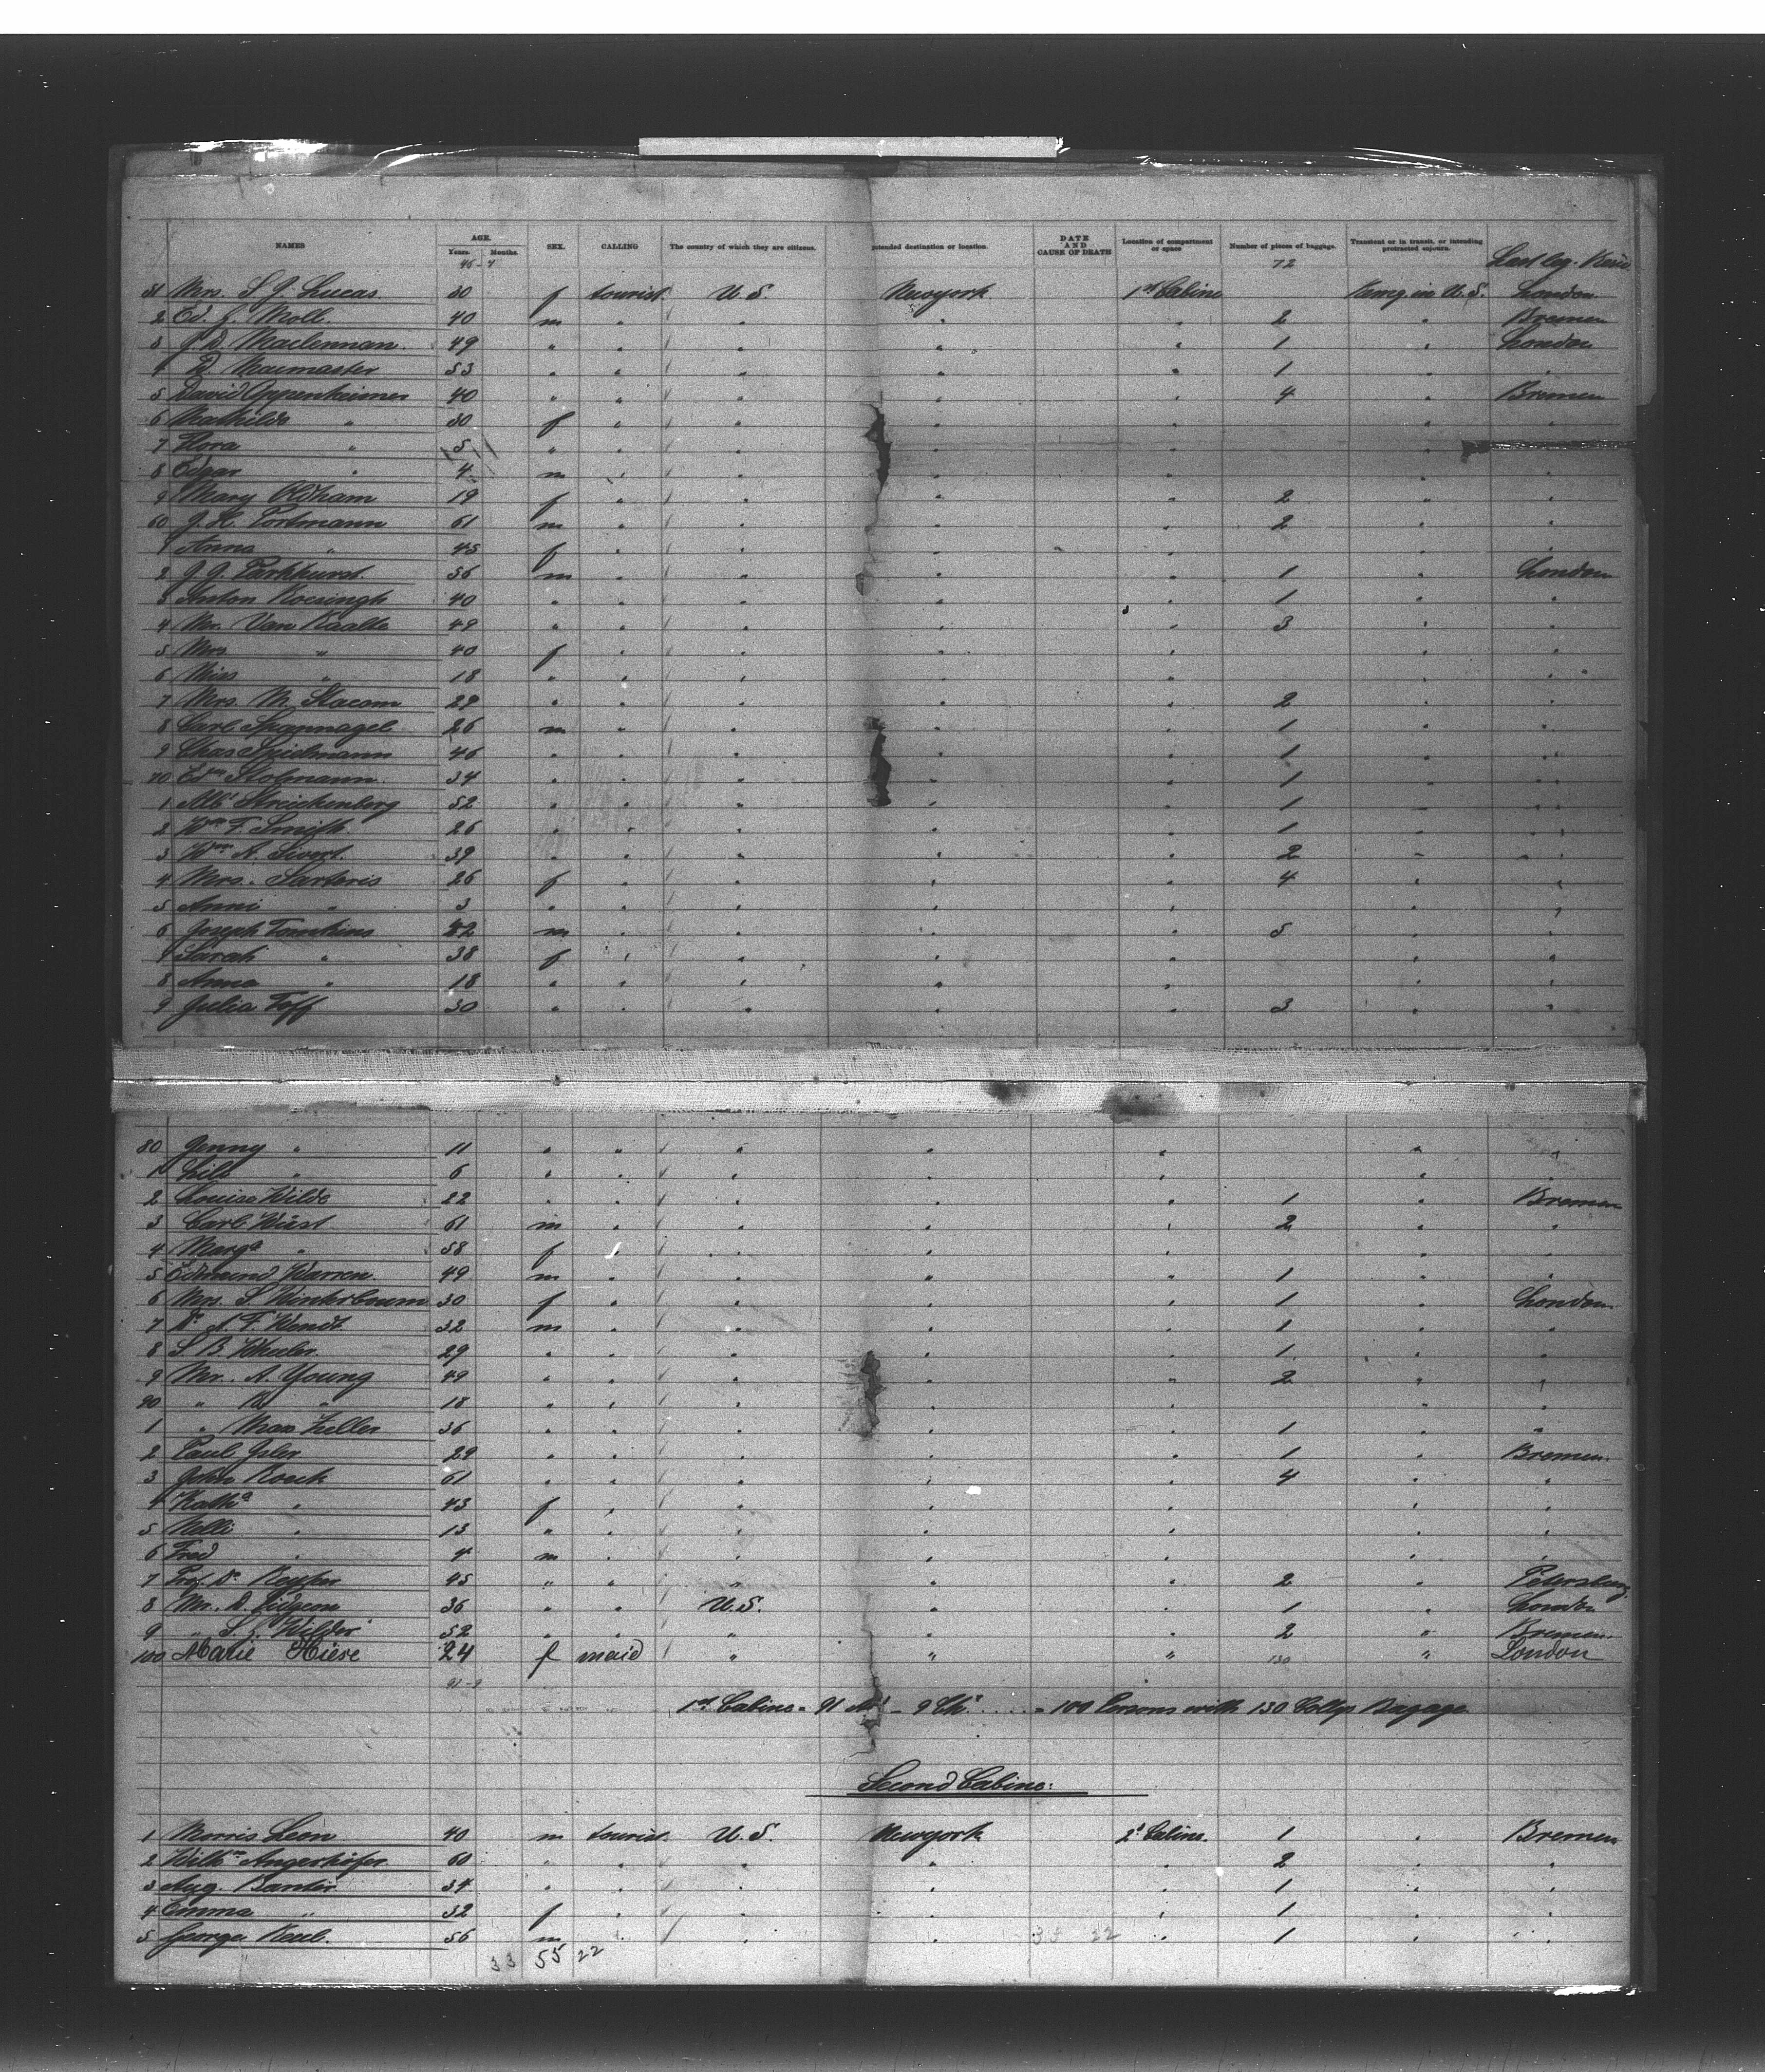 NAMES AGE. Years. Months. SEX. CALLING The country of which they are citizens. Intended destination or location. DATE AND CAUSE OF DEATH Location of compartment or space Number of pieces of baggage. Transient or in transit, or intending protracted sojourn.
72 Last leg. Resid.
51 Mrs. S J Lucas. 30 f tourist U.S. Newyork 1st Cabine in U.S. London
2 Ed. J. Moll. 40 m " " " " 2 " Bremen
3 J. D. Maclennan. 49 " " " " " 1 " London
4 D. Macmaster 53 " " " " " 1 " "
5 David Oppenheimer 40 " " " " " 4 " Bremen
6 Mathilde " 30 f " " " " " "
7 Flora " 5 " " " " " " "
8 Edgar " 4 m " " " " " "
9 Mary Oldham 19 f " " " " 2 " "
60 J. H. Portmann 61 m " " " " 2 " "
1 Anna " 45 f " " " " " "
2 J. J. Parkhurst. 56 m " " " " 1 " London
3 Anton Roesingh 40 " " " " " 1 " "
4 Mr. Van Raalte 49 " " " " " 3 " "
5 Mrs " 40 f " " " " " "
6 Miss " 18 " " " " " " "
7 Mrs. M. Slocom 29 " " " " " 2 " "
8 Carl Spannagel 26 m " " " " 1 " "
9 Chas Speilmann 46 " " " " " 1 " "
70 Edm Slobmann 34 " " " " " 1 " "
1 Albt Streickenberg 52 " " " " " 1 " "
2 Wm F. Smith 26 " " " " " 1 " "
3 Wm A. Sivert. 39 " " " " " 2 " "
4 Mrs. Sartoris 26 f " " " " 4 " "
5 Anni " 3 " " " " " " "
6 Joseph Tomkins 42 m " " " " 5 " "
7 Sarah " 38 f " " " " " "
8 Anna " 18 " " " " " " "
9 Julia Toff 30 " " " " " 3 " "
80 Jenny " 11 " " " " " " "
1 Lili " 6 " " " " " " "
2 Louise Wilde 22 " " " " " 1 " Bremen
3 Carl Wüst 61 m " " " " 2 " "
4 Marga " 58 f " " " " " "
5 Edmund Warren. 49 m " " " " 1 " "
6 Mrs. S. Winterbourn 30 f " " " " 1 " London
7 Dr. A. F. Wendt. 32 m " " " " 1 " "
8 S B. Wheeler. 29 " " " " " 1 " "
9 Mr. A. Young 49 " " " " " 2 " "
90 " " 18 " " " " " " "
1 " Max Zeller 36 " " " " " 1 " "
2 Paul Isler 29 " " " " " 1 " Bremen.
3 John Roeck 61 " " " " " 4 " "
4 Katha " 43 f " " " " " "
5 Nelli " 13 " " " " " " "
6 Fred " 4 m " " " " " "
7 Prof. Dr. 45 " " " " " 2 " Petersburg
8 Mr. D. Pidgeon 36 " " U.S. " " 1 " London
9 " S. Wilder 52 " " " " " 2 " Bremen.
100 Marie Hiese 24 f maid " " " 130 " London
1st Cabine = 91 Ad. - 9 Ch. . . . . = 100 Persons with 130 Collys Bagage
Second Cabine:
1 Morris Leon 40 m tourist U.S. Newyork 2d Cabine. 1 " Bremen
2 Wilhm Angerhöfer 60 " " " " " 2 " "
3 Aug. Banter 34 " " " " " 1 " "
4 Emma " 32 f " " " " 1 " "
5 George Reul. 56 m " " " " 1 " "
33 55 22
33 22